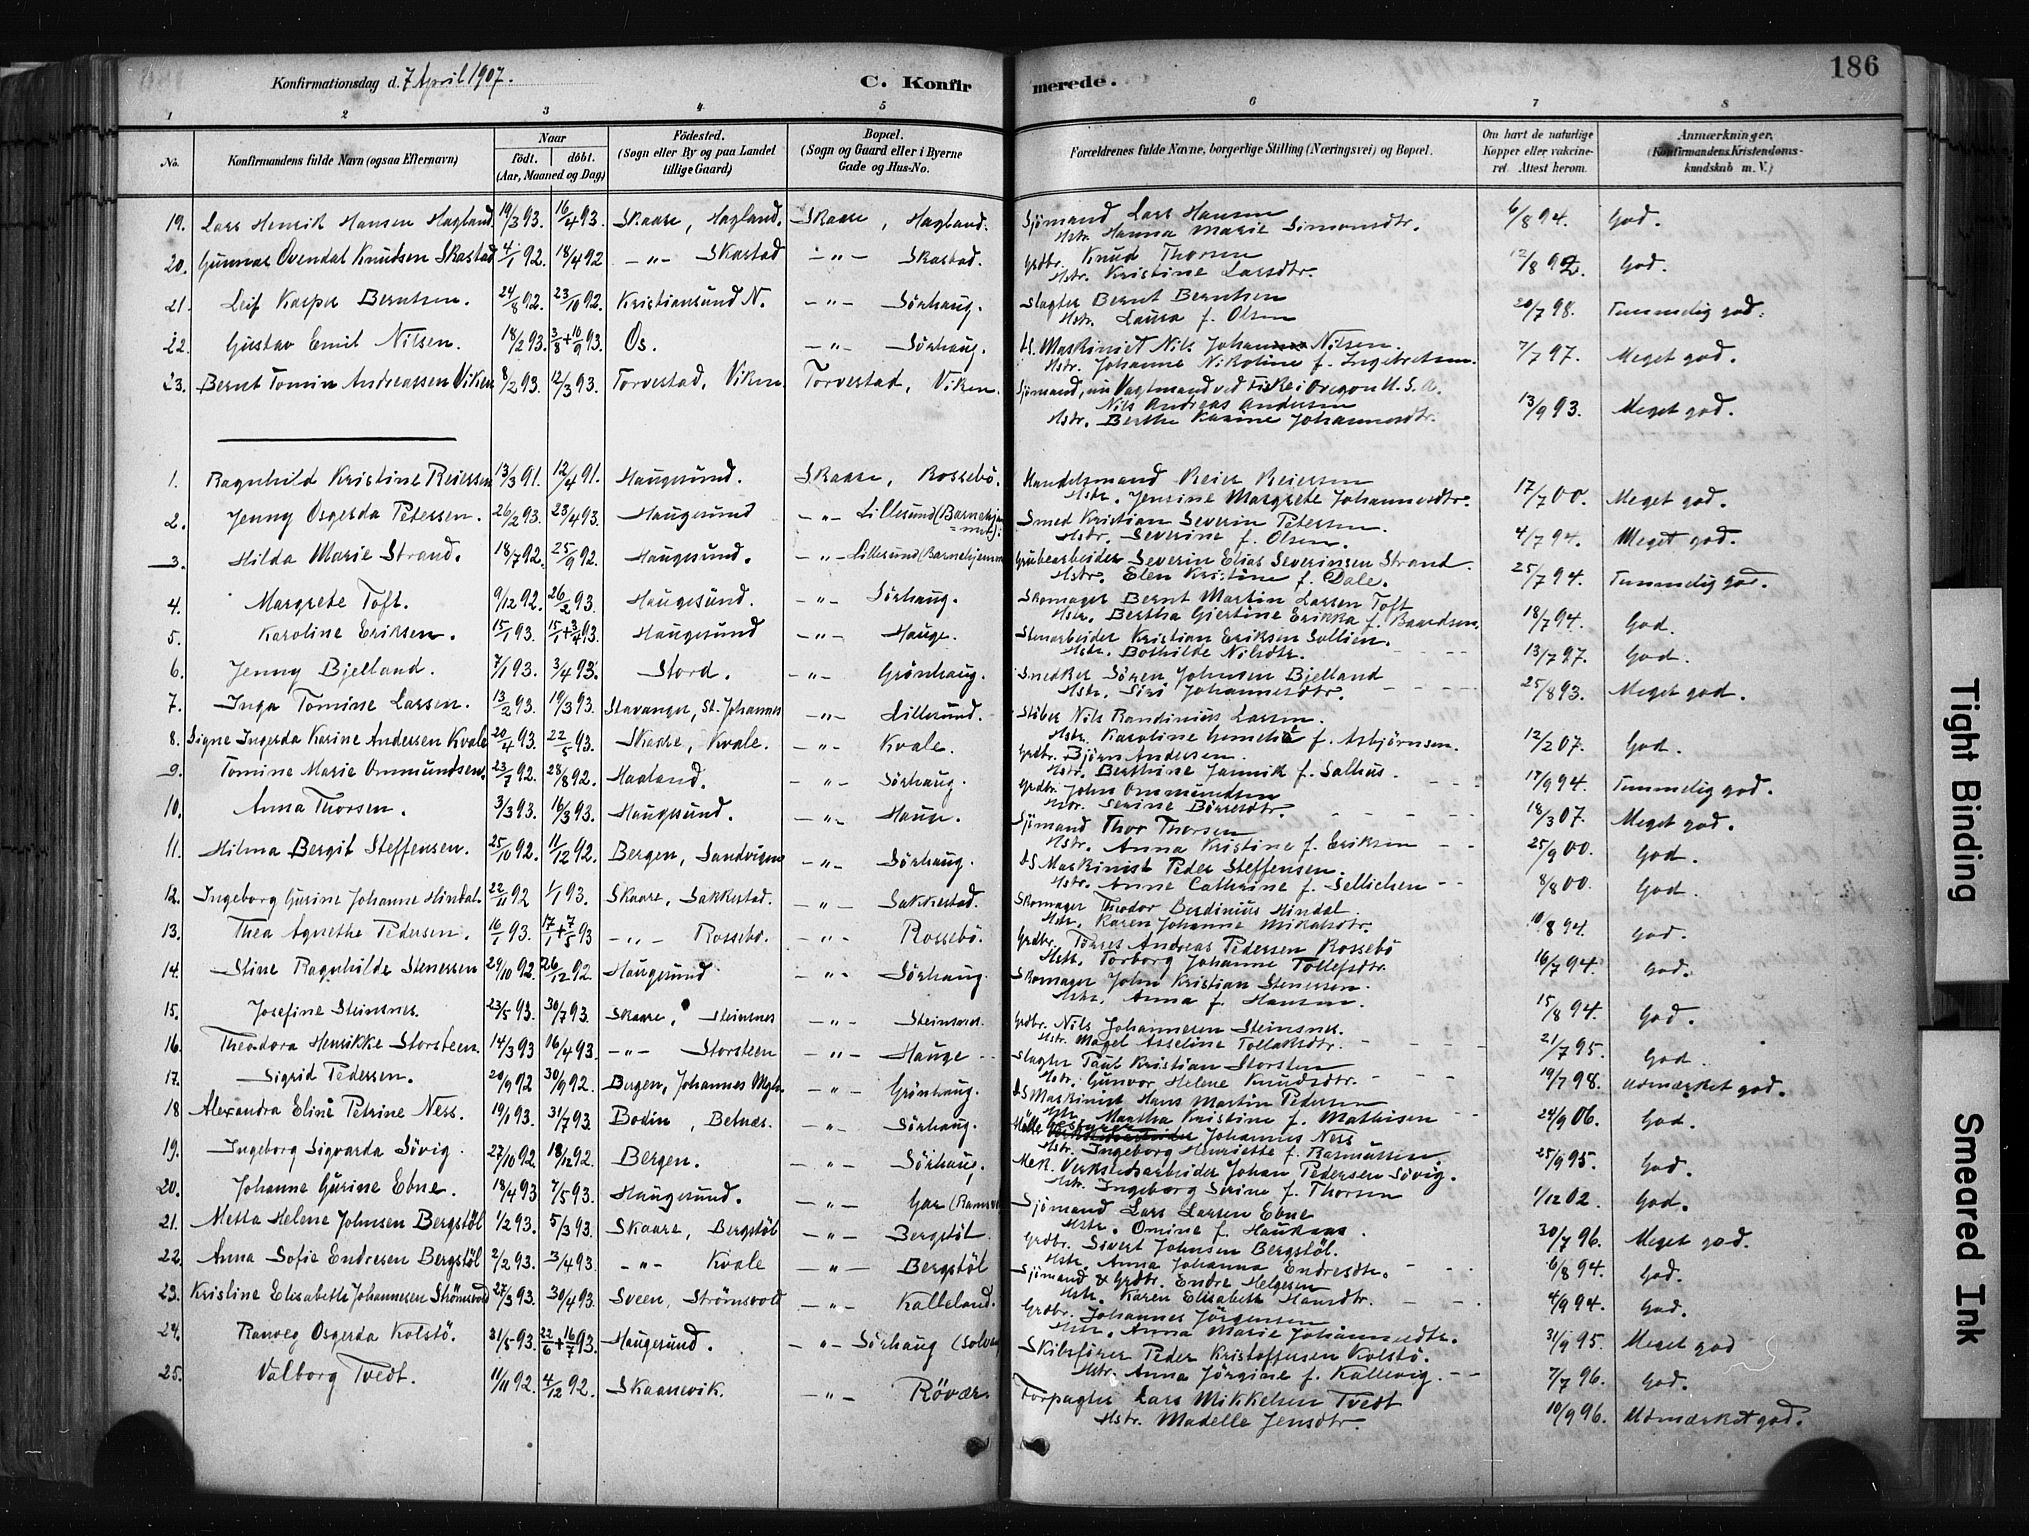 Konfirmationsdag d. 7 April 1907.
C. Konfirmerede.
186
1 2 3 4 5 6 7 8
No. Konfirmandens fulde Navn (ogsaa Efternavn) Naar født. døbt. (Aar, Maaned og Dag) Födested. (Sogn eller By og paa Landet tillige Gaard) Bopæl. (Sogn og Gaard eller i Byerne Gade og Hus-No. Forældrenes fulde Navne, borgerlige Stilling (Næringsvei) og Bopæl. Om havt de naturlige Kopper eller vakcineret. Attest herom. Anmærkninger. (Konfirmandens Kristendomskundskab m. V.)
19. Lars Henrik Hansen Hagland. 19/3 93. 16/4 93. Skaare, Hagland. Skaare, Hagland. Sjømand Lars Hansen 6/8 94. God.
Hstr. Hanna Marie Simonsdtr.
20. Gunnar Ovendal Knudsen Skastad 4/1 92. 18/4 92 -"- Skastad -"- Skastad. Grdbr. Knud Thorsen 12/8 92. God.
Hstr. Kristine Larsdtr.
21. Leif Kasper Berntsen. 24/8 92. 23/10 92. Kristiansund N. -"- Sörhaug. Slagter Bernt Berntsen 20/7 98. Temmelig god.
Hstr. Laura f. Olsen
22. Gustav Emil Nilsen. 18/2 93. 3/8 + 10/9 93. Os. -"- Sörhaug. ds. Maskinist Nils Johan Nilsen. 7/7 97. Meget god.
Hstr. Johanne Nikoline f. Ingebretsen.
23. Bernt Tomin Andreassen Viken 8/2 93. 12/3 93. Torvestad, Viken. Torvestad, Viken. Sjømand, nu Vagtmand ved Fiske i Oregon U.S.A.
Nils Andreas Andersen 13/9 93. Meget god.
Hstr. Berthe Karine Johannesdtr.
1. Ragnhild Kristine Reiersen 13/3 91. 12/4 91. Haugesund. Skaare, Rossebö. Handelsmand Reier Reiersen 17/7 00. Meget god.
Hstr. Jensine Margrete Johannesdtr.
2. Jenny Osgerda Petersen. 26/2 93. 23/4 93. Haugesund -"- Lillesund (Barnehjemmet). Smed Kristian Severin Petersen. 4/7 94. Meget god.
Hstr. Severine f. Olsen.
3. Hilda Marie Strand. 18/7 92. 25/9 92. Haugesund. -"- Lillesund (Barnehjemmet Grubearbeider Severin Elias Severinsen Strand. 25/7 94. Temmelig god.
Hstr. Elen Kristine f. Dale.
4. Margrete Toft. 9/12 92. 26/2 93. Haugesund. -"- Sörhaug. Skomager Bernt Martin Larsen Toft 18/7 94. God.
Hstr. Bertha Gjertine Erikka f. Baardsen.
5. Karoline Eriksen. 15/1 93. 15/1 + 3/4 93. Haugesund -"- Hauge. Stenarbeider Kristian Eriksen Sollien. 13/7 97. God.
Hstr. Bothilde Nilsdtr.
6. Jenny Bjelland. 7/1 93. 3/4 93. Stord. -"- Grönhaug. Snedker Sören Johnsen Bjelland 25/8 93. Meget god.
Hstr. Siri Johannesdtr.
7. Inga Tomine Larsen. 13/2 93. 19/3 93. Stavanger, St. Johannes -"- Lillesund. Stöber Nils Randinius Larsen. 12/2 07. God.
Hstr. Karoline f. Asbjörnsen.
8. Signe Ingerda Karine Andersen Kvale 20/4 93. 22/5 93. Skaare, Kvale. -"- Kvale. Grdbr. Björn Andersen. 17/9 94. Temmelig god.
Hstr. Berthine Jannik f. Salhus.
9. Tomine Marie Ommundsen. 23/7 92. 28/8 92. Haaland. -"- Sörhaug. Grdbr. John Ommundsen 18/3 07. Meget god.
Hstr. Serine Börresdtr.
10. Anna Thorsen. 3/3 93. 16/3 93. Haugesund. -"- Hauge. Sjømand Thor Thorsen 25/9 00. God.
Hstr. Anna Kristine f. Eriksen
11. Hilma Bergit Steffensen. 25/10 92. 11/12 92. Bergen, Sandvigens -"- Sörhaug. ds Maskinist Peder Steffensen. 8/8 00. God.
Hstr. Anne Cathrine f. Sellichen
12. Ingeborg Gurine Johanne Hindal. 22/11 92 1/1 93. Skaare, Sakkestad. -"- Sakkestad. Skomager Theodor Berdinius Hindal. 10/8 94. God.
Hstr. Karen Johanne Mikalsdtr.
13. Thea Agnethe Pedersen. 16/1 93. 17/1 + 7/5 93 -"- Rossebö. -"- Rossebö. Grdbr. Torres Andreas Pedersen Rossebö 16/7 94. God.
Hstr. Torborg Johanne Tollefsdtr.
14. Stine Ragnhilde Stenersen 29/10 92 26/12 92 Haugesund -"- Sörhaug. Skomager John Kristian Stenersen. 15/8 94. God.
Hstr. Anna f. Hansen.
15. Josefine Steinsnes. 23/5 93. 30/7 93. Skaare, Steinsnes -"- Steinsnes. Grdbr. Nils Johannesen Steinsnes. 21/7 95. God.
Hstr. Magel Asseline Tollaksdtr.
16. Theodora Henrikke Storsteen. 14/3 93 16/4 93. -"- Storsteen -"- Hauge Slagter Paul Kristian Storsten 19/7 98. Udmærket god.
Hstr. Gunvor Helene Knudsdtr.
17. Sigrid Pedersen. 20/9 92 30/9 92. Bergen, Johannes Mgh. -"- Grönhaug. ds Maskinist Hans Martin Pedersen 24/9 06. God.
Hstr. Martha Kristine f. Mathisen
18 Alexandra Eline Petrine Ness. 19/1 93. 31/7 93. Bodin, -"- Sörhaug. Mölle Bestyrer Johannes Ness 25/9 95. God.
Hstr. Ingeborg Henriette f. Rasmussen.
19. Ingeborg Sigvarda Sövig. 27/10 92. 18/12 92. Bergen. -"- Sörhaug. Mek. Verkstedsarbeider Johan Pedersen Sövig. 1/12 02. God.
Hstr. Ingeborg Serine f. Thorsen
20. Johanne Gurine Ebne. 18/4 93 7/5 93. Haugesund. -"- Sjømand Lars Larsen Ebne 30/7 96. Meget god.
Hstr. Omine f.
21. Metta Helene Johnsen Bergstöl 1/2 93. 5/3 93. Skaare, Bergstöl -"- Bergstöl. Grdbr. Sivert Johnsen Bergstöl. 6/8 94. God.
Hstr. Anna Johanna Endresdtr.
22. Anna Sofie Endresen Bergstöl 2/2 93. 3/4 93. -"- Kvale -"- Bergstöl Sjømand & Grdbr. Endre Helgesen 4/9 94. God.
Hstr. Karen Elisabeth Hansdtr.
23. Kristine Elisabeth Johannesen Strömsvold 27/3 93. 30/4 93. Sveen, Strömsvold -"- Kalleland. Grdbr. Johannes Jörgensen 31/9 95. Meget god
Hstr. Anna Marie Johannesdtr.
24. Ranveg Osgerda Kolstö. 31/5 93. 22/6 + 16/7 93. Haugesund. -"- Sörhaug (Solvang Skibsförer Peder Kristoffersen Kolstö. 7/7 96. God.
Hstr. Anna Jörgine f. Kallevig.
25. Valborg Tvedt. 11/11 92. 4/12 92. Skaanevik. -"- Rövær. Forpagter Lars Mikkelsen Tvedt 10/9 96. Udmærket god.
Hstr. Madelle Jensdtr.
Tight Binding
Smeared Ink